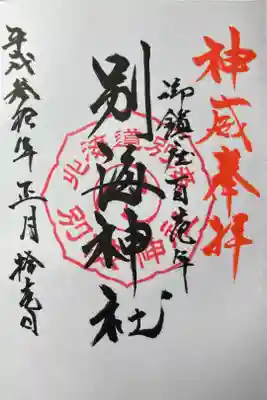 神威奉拝
御鎮座百壱年
別海神社
平成参拾年正月拾壱日
北海道別